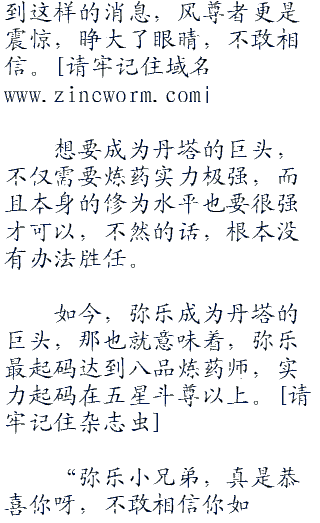 到这样的消息，风尊者更是
震惊，睁大了眼睛，不敢相
信。[请牢记住域名
www.zincworm.com|
想要成为丹塔的巨头，
不仅需要炼药实力极强，而
且本身的修为水平也要很强
才可以，不然的话，根本没
有办法胜任。
如今，弥乐成为丹塔的
巨头，那也就意味着，弥乐
最起码达到八品炼药师，实
力起码在五星斗尊以上。[请
牢记住杂志虫]
“弥乐小兄弟，真是恭
喜你呀，不敢相信你如